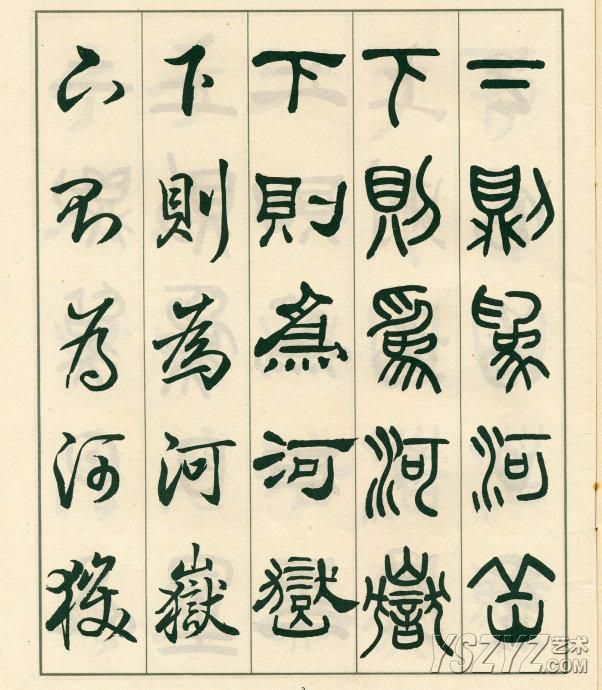 下則為河嶽
下則為河嶽
下則為河嶽
下則為河嶽
下則為河嶽
YSZYZ艺术